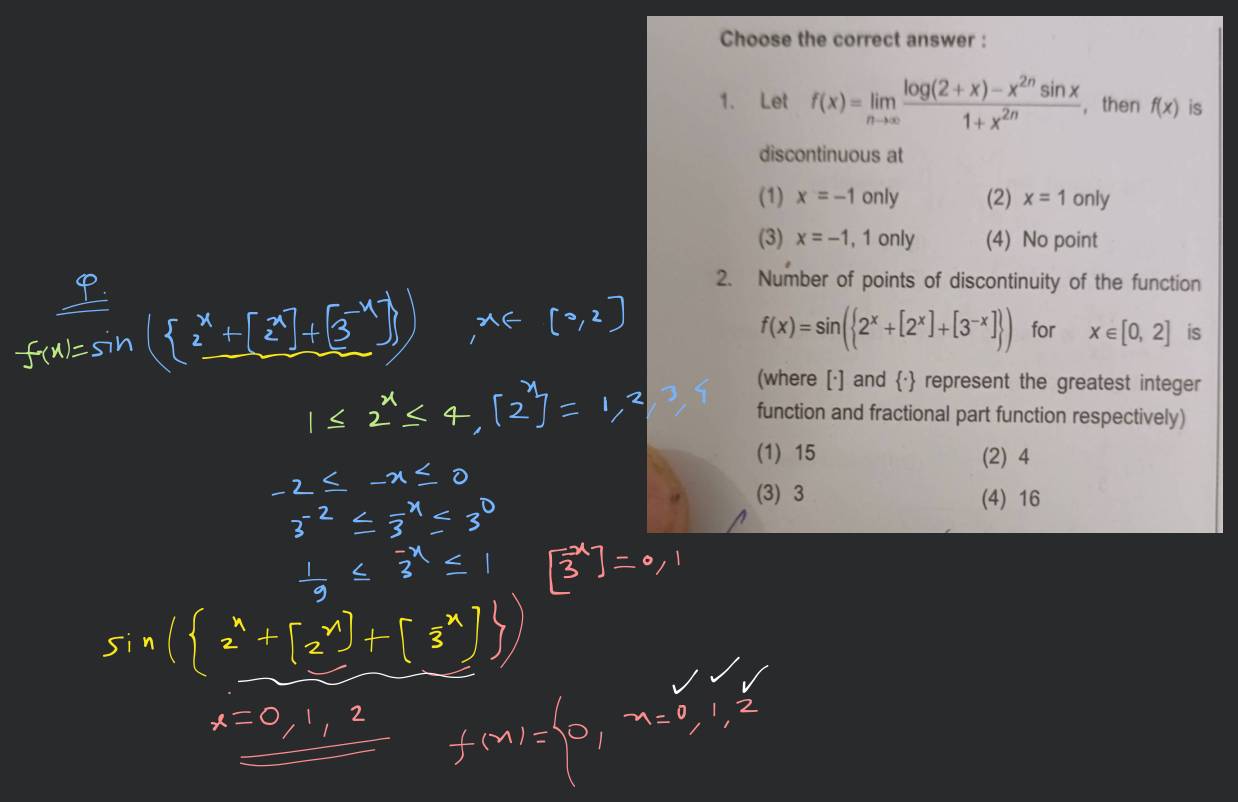 Choose the correct answer :
1. Let f(x) = lim n→∞ (log(2 + x) – x²ⁿ sin x) / (1 + x²ⁿ), then f(x) is
discontinuous at
(1) x = –1 only (2) x = 1 only
(3) x = –1, 1 only (4) No point
2. Number of points of discontinuity of the function
f(x) = sin({2ˣ + [2ˣ] + [3⁻ˣ]}) for x ∈ [0, 2] is
(where [·] and {·} represent the greatest integer
function and fractional part function respectively)
(1) 15 (2) 4
(3) 3 (4) 16
φ.
f(x) = sin({2ˣ + [2ˣ] + [3⁻ˣ]}) , x ∈ [0, 2]
1 ≤ 2ˣ ≤ 4, [2ˣ] = 1, 2, 3, 4
-2 ≤ -x ≤ 0
3⁻² ≤ 3⁻ˣ ≤ 3⁰
1/9 ≤ 3⁻ˣ ≤ 1 [3⁻ˣ] = 0, 1
sin({2ˣ + [2ˣ] + [3⁻ˣ]})
x = 0, 1, 2
f(x) = { 0, x = 0, 1, 2